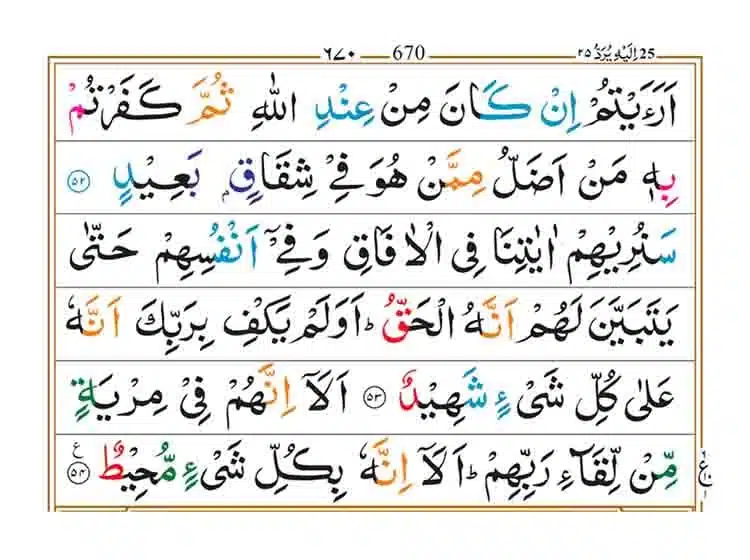 ٦٧٠ 670 ٢٥ اِلَيْهِ يُرَدُّ 25
اَرَءَيْتُمْ اِنْ كَانَ مِنْ عِنْدِ اللّٰهِ ثُمَّ كَفَرْتُمْ
بِهٖ مَنْ اَضَلُّ مِمَّنْ هُوَ فِيْ شِقَاقٍۭ بَعِيْدٍ ۝٥٢
سَنُرِيْهِمْ اٰيٰتِنَا فِى الْاٰفَاقِ وَفِيْٓ اَنْفُسِهِمْ حَتّٰى
يَتَبَيَّنَ لَهُمْ اَنَّهُ الْحَقُّ ؕ اَوَلَمْ يَكْفِ بِرَبِّكَ اَنَّهٗ
عَلٰى كُلِّ شَىْءٍ شَهِيْدٌ ۝٥٣ اَلَآ اِنَّهُمْ فِيْ مِرْيَةٍ
مِّنْ لِّقَآءِ رَبِّهِمْ ؕ اَلَآ اِنَّهٗ بِكُلِّ شَىْءٍ مُّحِيْطٌ ۝٥٤ ع